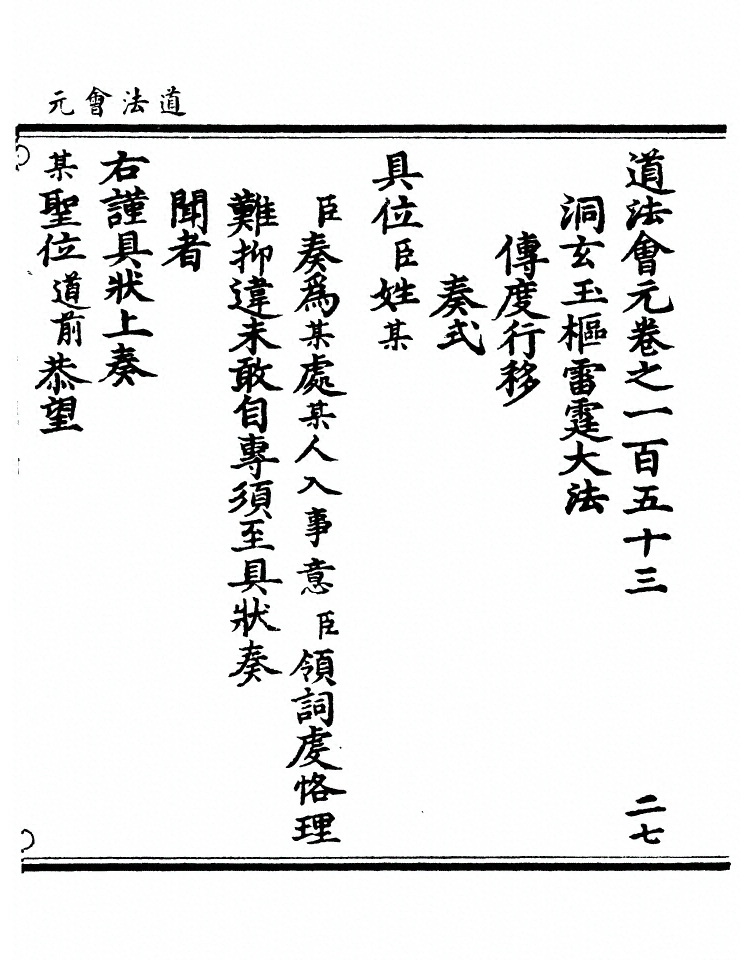 道法會元
道法會元卷之一百五十三 二七
洞玄玉樞雷霆大法
傳度行移
奏式
具位臣姓某
臣奏爲某處某人入事意臣領詞虔恪理
難抑違未敢自專須至具狀奏
聞者
右謹具狀上奏
某聖位道前恭望